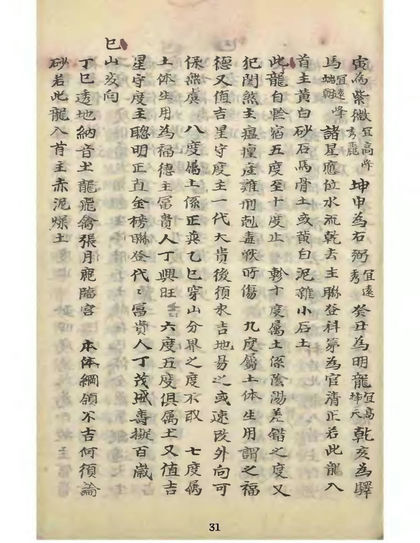 寅為紫微宜高峰秀麗 坤申為石弼宜遠秀 癸丑為明龍宜高坤天 乾亥為驛
馬宜遠峰端𡺸 諸星應位水流乾去主聯登科第為官清正若此龍入
首主黃白砂石馬骨土或黃白泥雜小石土
此龍自軫宿五度至十度止 軫十度屬土係陰陽差錯之度又
犯關煞主瘟瘟庄雜刑剋毒蛟吋傷 九度屬土体生用謂之福
德又值吉星守度主一代大貴後須水吉地易之或速改外向可
保無虞 八度屬土係正爽乙巳穿山分界之度不取 七度屬
土体生用為福德主富貴人丁興旺 六度五度俱屬土又值吉
星守度主聰明正直金榜聯登代代富貴人丁茂盛壽擬百歲
巳山亥向
丁巳透地納音土龍飛禽張月鹿臨宮 本体綱領不吉何須論
砂若此龍入首主赤泥燥土
31